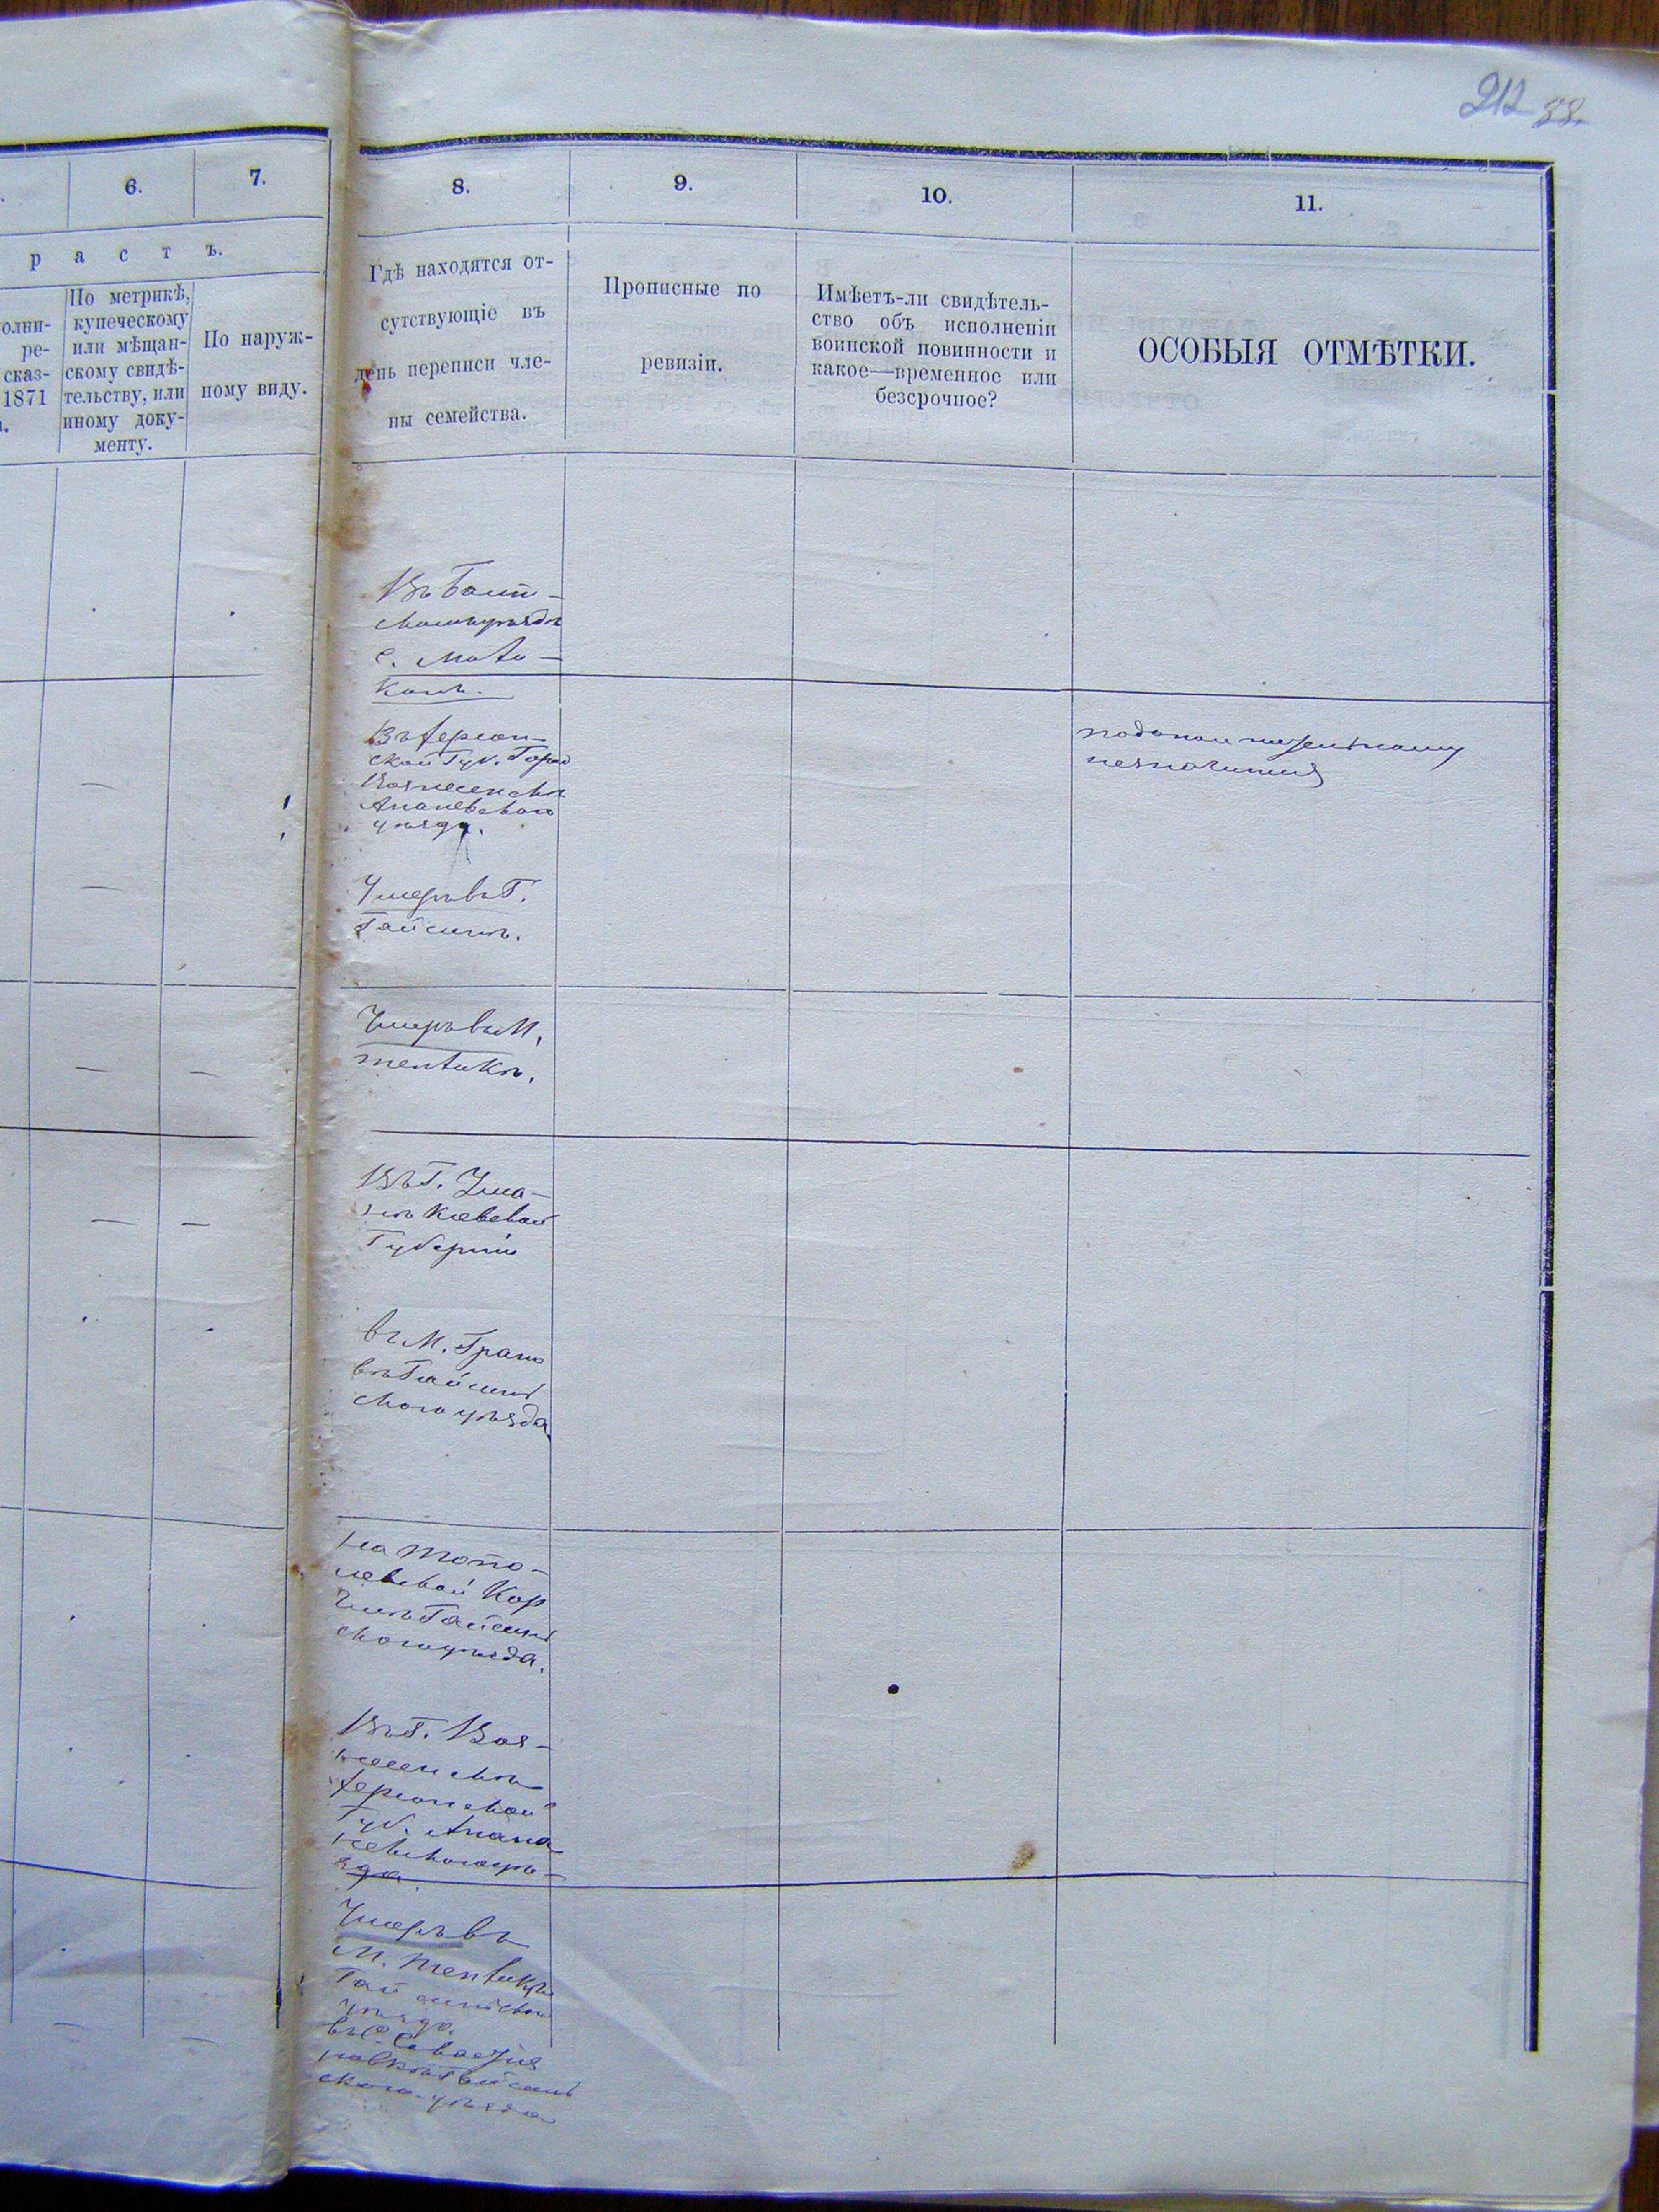 212 88.
6.
7.
8.
9.
10.
11.
р а с т ъ.
олни-
ре-
сказ-
1871
По метрикѣ,
купеческому
или мѣщан-
скому свидѣ-
тельству, или
иному доку-
менту.
По наруж-
ному виду.
Гдѣ находятся от-
сутствующіе въ
день переписи чле-
ны семейства.
Прописные по
ревизіи.
Имѣетъ-ли свидѣтель-
ство объ исполненіи
воинской повинности и
какое—временное или
безсрочное?
ОСОБЫЯ ОТМѢТКИ.
Въ Балт-
скомъ уѣздѣ
с.
Въ Херсон-
ской Губ. Город
Вознесенскъ
Ананьевскаго
уѣзда.
Умеръ въ Г.
Гайсинѣ.
Умеръ въ М.
Тепликѣ.
Въ Г. Ума-
нѣ Кіевской
Губерніи
въ М. Грано
въ Гайсин
скаго уѣзда
на Топо-
левской Кор
чмѣ Гайсин
скаго уѣзда.
Въ Г. Воз-
несенскѣ
Херсонской
Губ. Анана
невскаго уѣ-
зда
Умеръ въ
М. Тепликѣ
Гайсинскаго
уѣзда.
скаго уѣзда